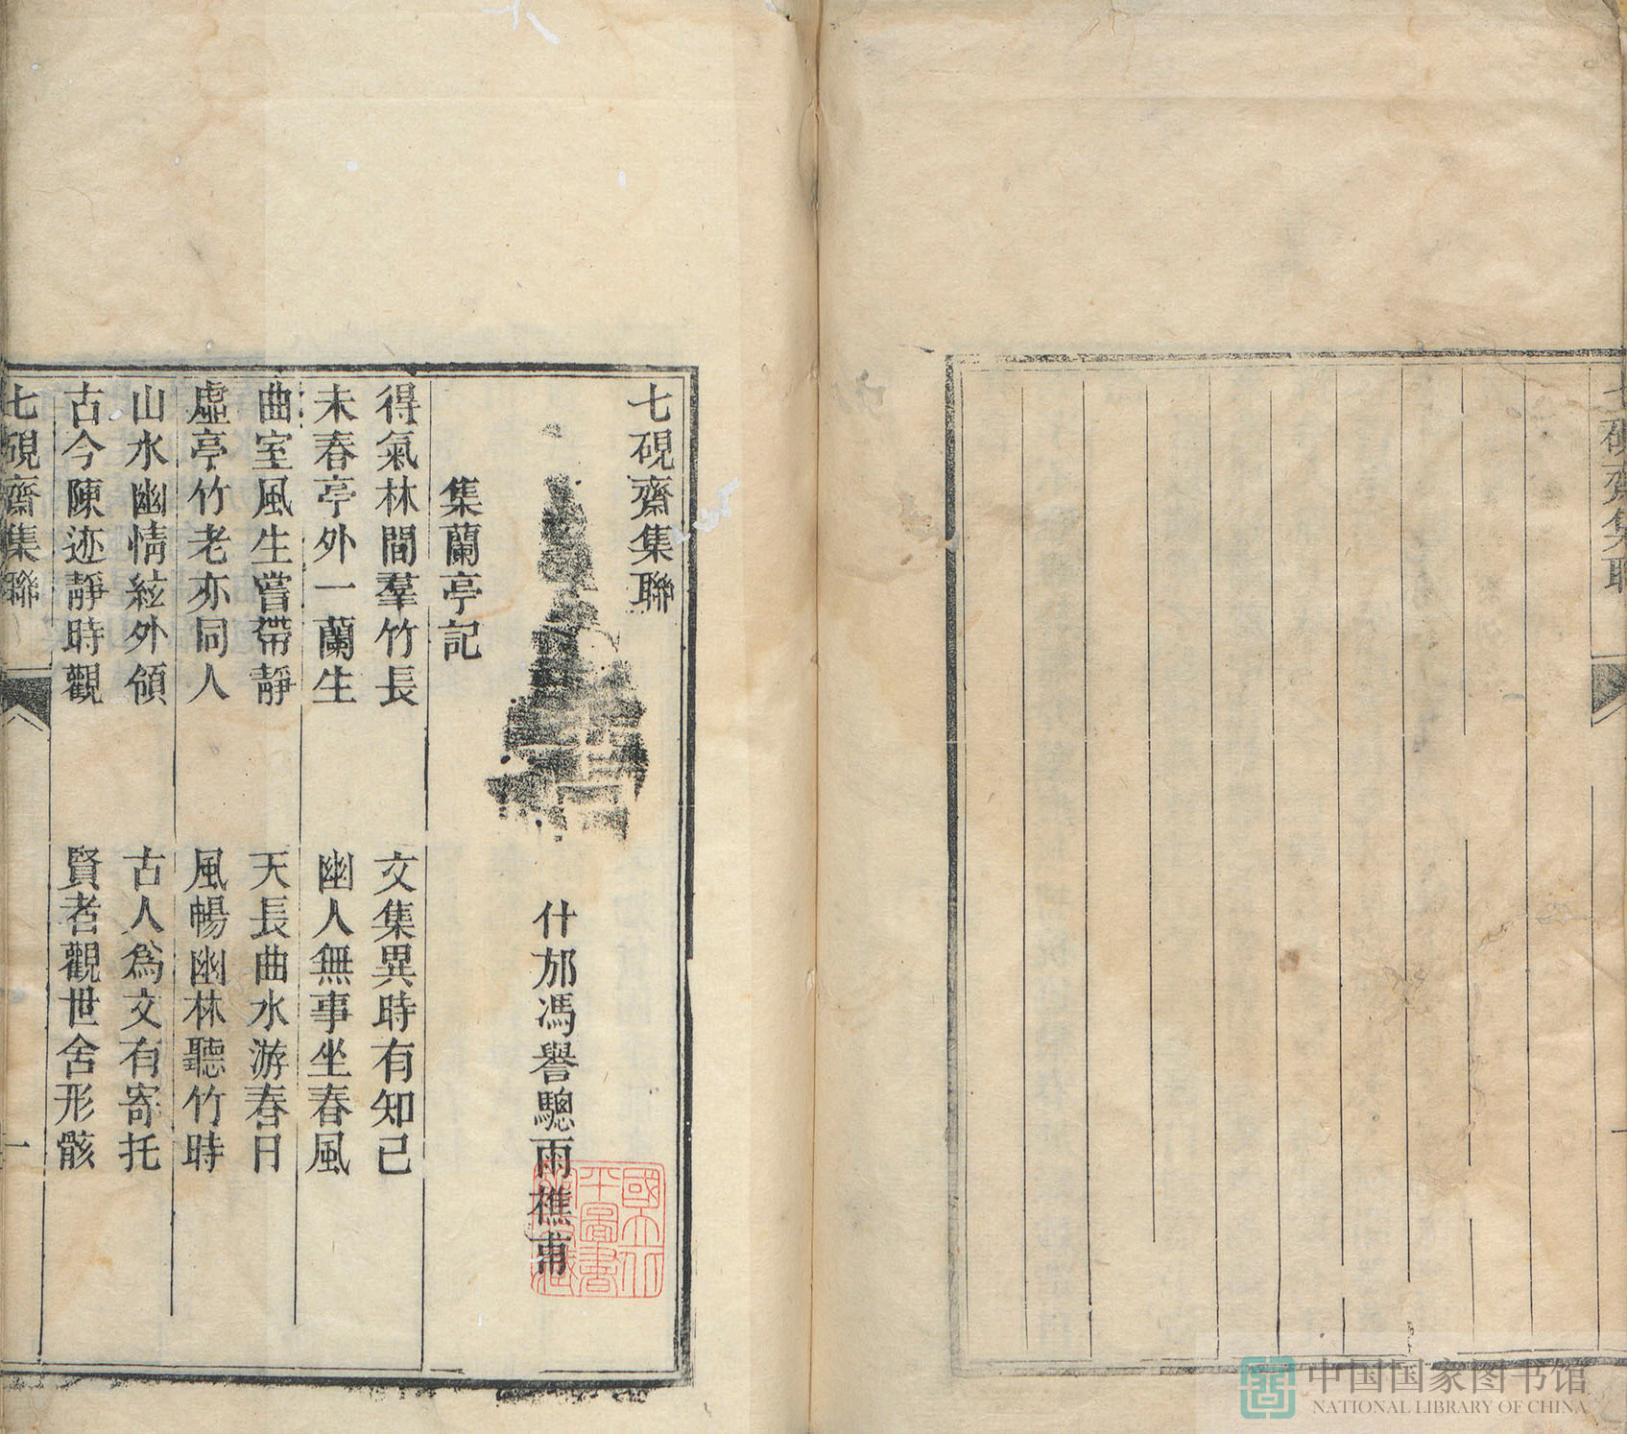 七硯齋集聯
什邡馮譽驄雨樵甫
集蘭亭記
得氣林間羣竹長　文集異時有知己
未春亭外一蘭生　幽人無事坐春風
曲室風生嘗帶靜　天長曲水游春日
虛亭竹老亦同人　風暢幽林聽竹時
山水幽情絃外領　古人爲文有寄托
古今陳迹靜時觀　賢者觀世舍形骸
七硯齋集聯　一
中国国家图书馆
NATIONAL LIBRARY OF CHINA